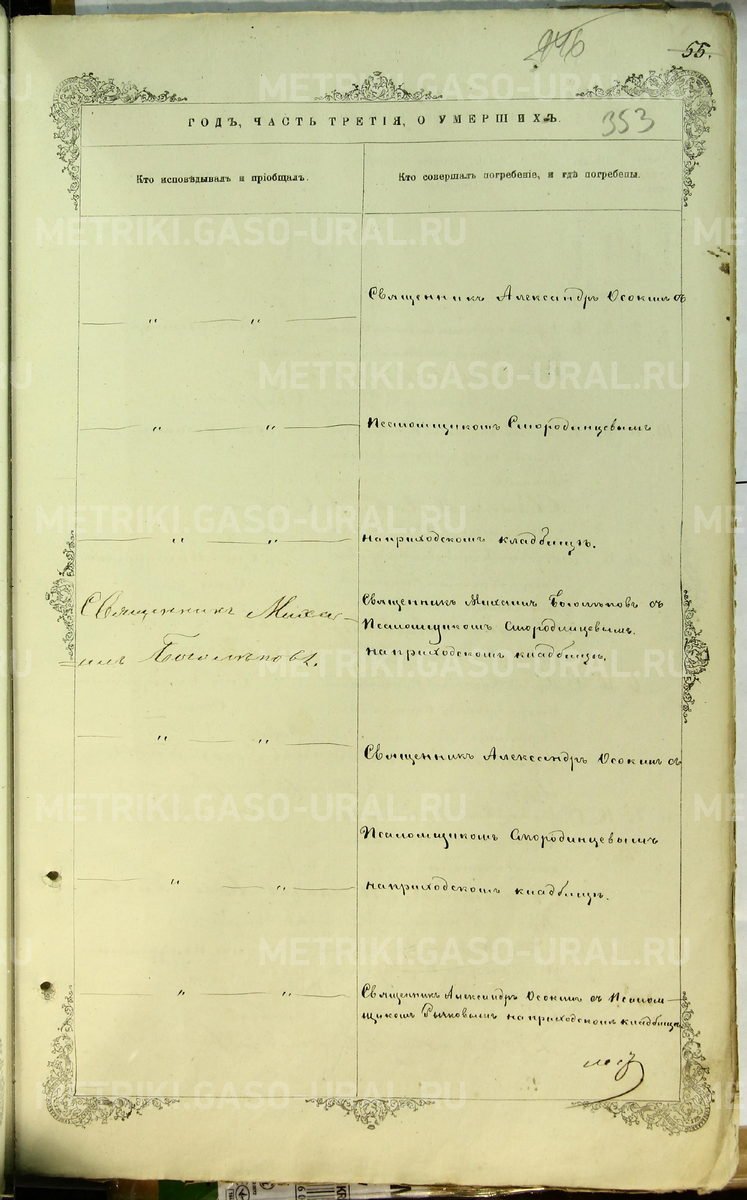 55.
353
ГОДЪ, ЧАСТЬ ТРЕТІЯ, О УМЕРШИХЪ.
Кто исповѣдывалъ и пріобщалъ.
Кто совершалъ погребеніе, и гдѣ погребены.
Священникъ Александръ Осокинъ съ
" "
Псаломщикомъ Смородинцевымъ
" "
на приходскомъ кладбищѣ.
" "
Священникъ Михаи-
илъ Боголѣповъ.
Священникъ Михаилъ Боголѣповъ съ
Псаломщикомъ Смородинцевымъ.
на приходскомъ кладбищѣ.
" "
Священникъ Александръ Осокинъ съ
Псаломщикомъ Смородинцевымъ
" "
на приходскомъ кладбищѣ.
" "
Священникъ Александръ Осокинъ съ Псалом-
щикомъ Рычковымъ на приходскомъ кладбищѣ
METRIKI.GASO-URAL.RU